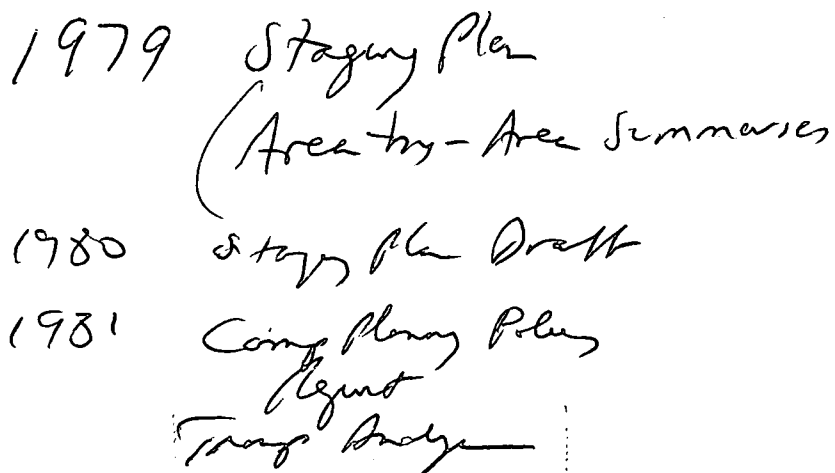 1979 Staging Plan
(Area by-Area Summaries
1980 Staging Plan Draft
1981 Comp Planning Policy
Report
Transp Analysis